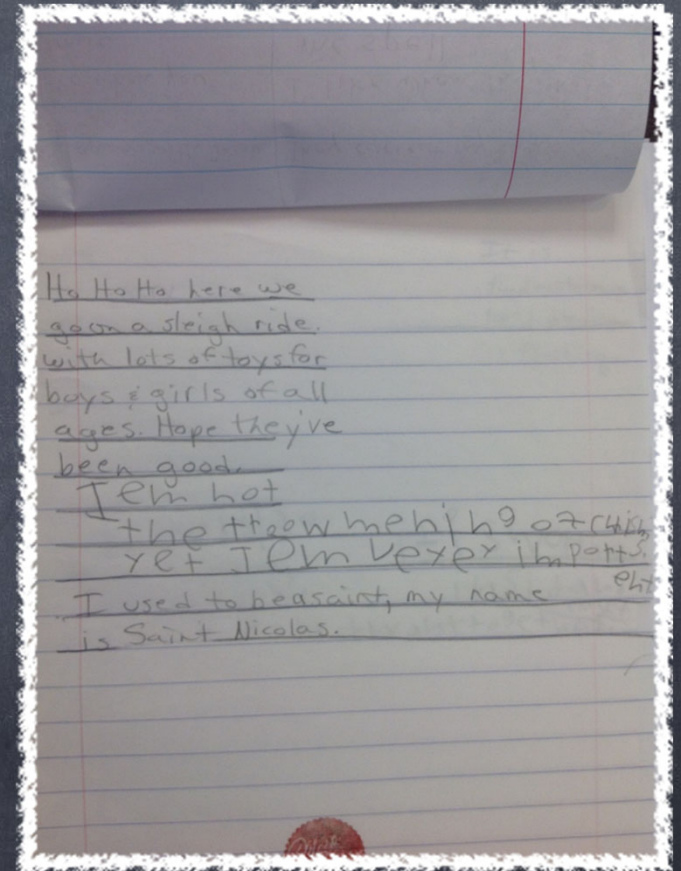 Ho Ho Ho here we
go on a sleigh ride.
with lots of toys for
boys & girls of all
ages. Hope they've
been good.
I em not
the troow mening of
yet I em veyey import
ent
I used to be a saint, my name
is Saint Nicolas.